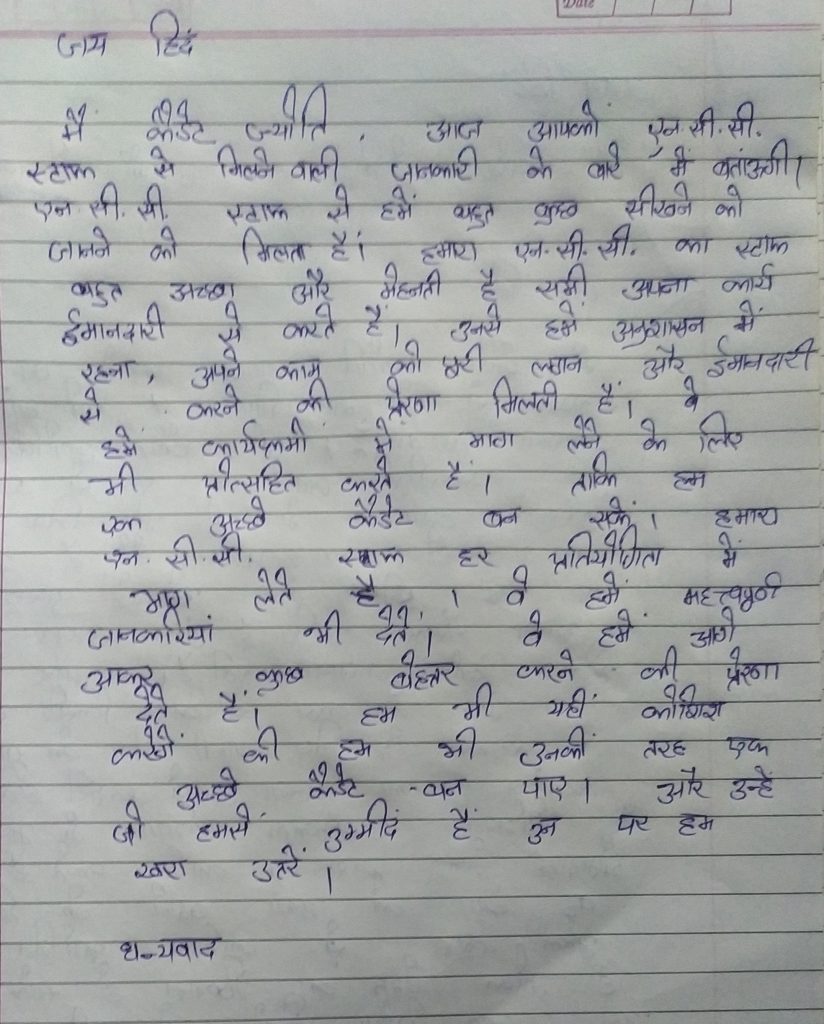 Date
जय हिंद
मैं कैडेट ज्योति , आज आपको एन.सी.सी.
स्टाफ से मिलने वाली जानकारी के बारे में बताऊंगी।
एन.सी.सी. स्टाफ से हमें बहुत कुछ सीखने को
जानने को मिलता है। हमारा एन.सी.सी. का स्टाफ
बहुत अच्छा और मेहनती है सभी अपना कार्य
ईमानदारी से करते हैं। उनसे हमें अनुशासन में
रहना, अपने काम को पूरी लगन और ईमानदारी
से करने की प्रेरणा मिलती हैं। वे
हमें कार्यक्रमों में भाग लेने के लिए
भी प्रोत्सहित करते हैं। ताकि हम
एक अच्छे कैडेट बन सकें। हमारा
एन.सी.सी. स्टाफ हर प्रतियोगिता में
भाग लेते है । वे हमें महत्त्वपूर्ण
जानकारियां भी देते। वे हमें आगे
आकर कुछ बेहतर करने की प्रेरणा
देते हैं। हम भी यहीं कोशिश
करेगें की हम भी उनकी तरह एक
अच्छे कैडेट बन पाए। और उन्हें
जो हमसें उम्मीदें हैं उन पर हम
खरा उतरें।
धन्यवाद